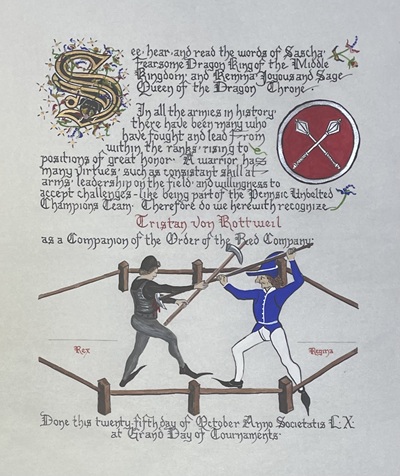 See, hear, and read the words of Sascha
Fearsome Dragon King of the Middle
Kingdom, and Remma, Joyous and Sage
Queen of the Dragon Throne.
In all the armies in history
there have been many who
have fought and lead from
within the ranks, rising to
positions of great honor. A warrior has
many virtues, such as consistant skill at
arms, leadership on the field, and willingness to
accept challenges - like being part of the Pennsic Unbelted
Champions Team. Therefore do we herewith recognize
Tristan von Rottweil
as a Companion of the Order of the Red Company.
Rex
Regina
Done this twenty-fifth day of October Anno Societatis L X
at Grand Day of Tournaments.